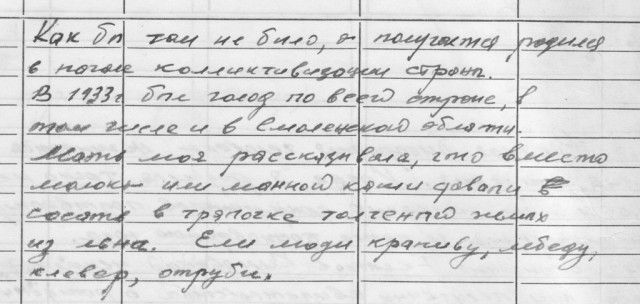 Как бы там не было, а получается родился
в начале коллективизации страны.
В 1933г был голод по всей стране, в
том числе и в Смоленской области.
Мать моя рассказывала, что вместо
молока или манной каши давали
сосать в тряпочке толченый жмых
из льна. Ели люди крапиву, лебеду,
клевер, отруби.